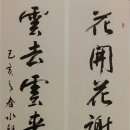 花開花謝
雲去雲來
己亥之春